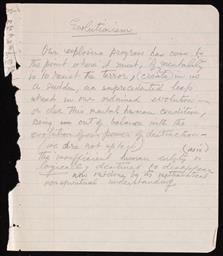 Evolutionism
Our explosive progress has come to
the point where it must, if mentality
is to resist the terror, (create) in us
a sudden, an unprecedented leap
ahead in our ordained evolution —
or else this mental human condition,
being in out of balance with the
evolution of our power of destruction —
(we dare not use it)
the insufficient human entity is (now)
logically destined to disappear
now existing by its
nonspiritual understanding